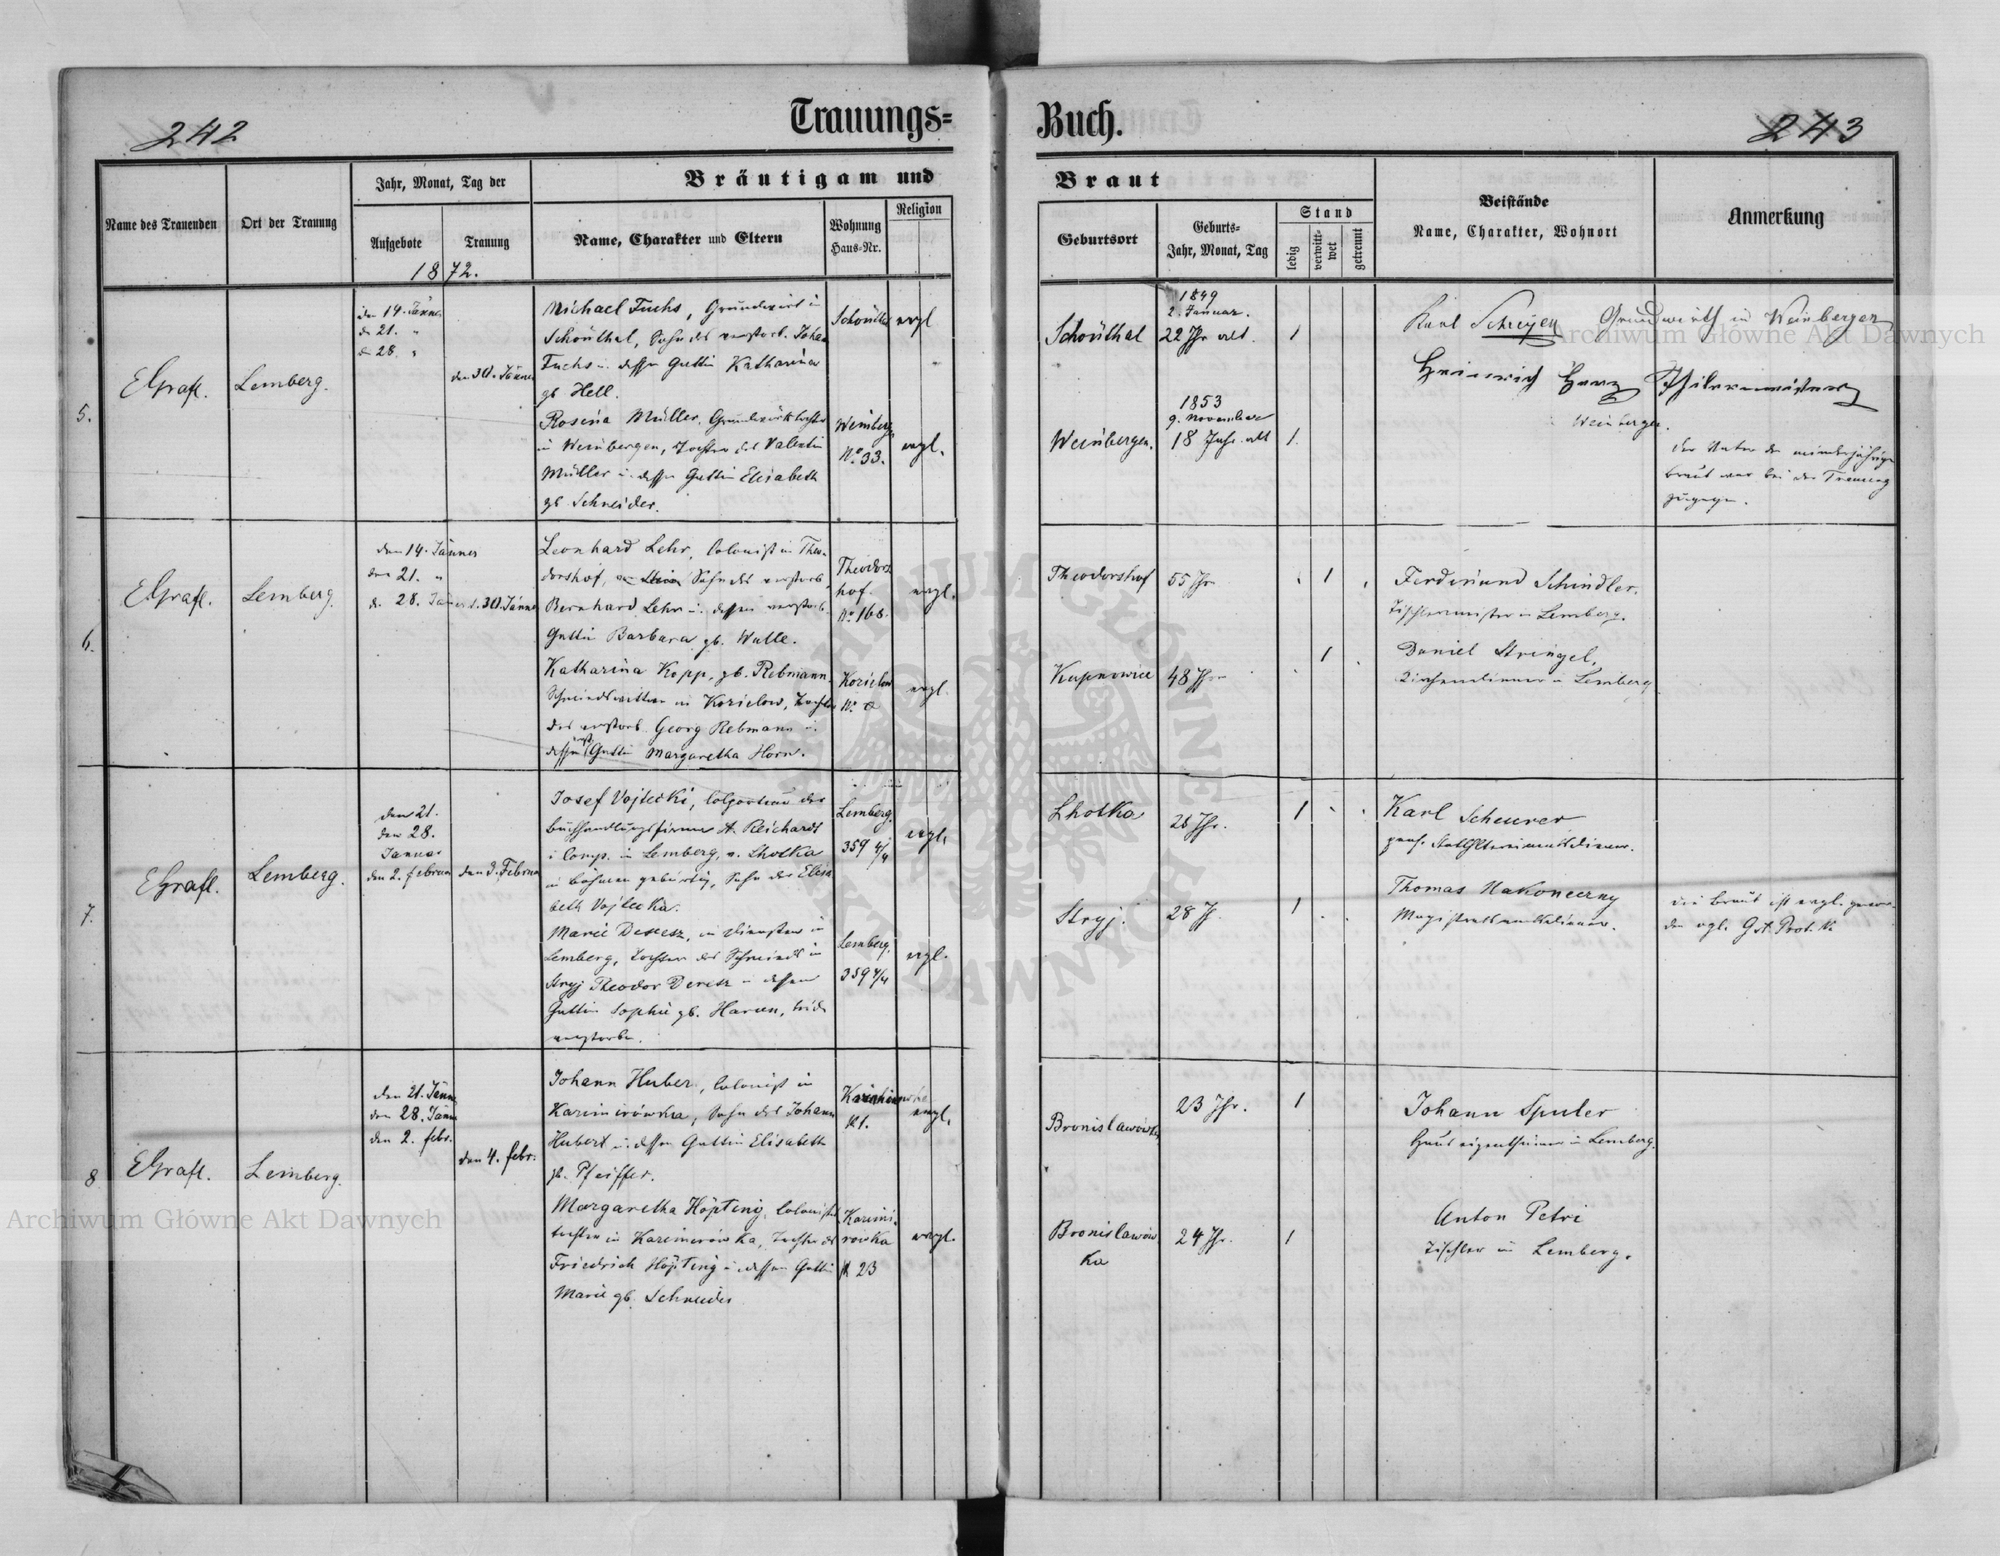 242
Trauungs=
Name des Trauenden
Ort der Trauung
Jahr, Monat, Tag der
Aufgebote
Trauung
1872.
Bräutigam und
Name, Charakter und Eltern
Wohnung
Haus-Nr.
Religion
5.
EGrafl.
Lemberg.
den 14. Jänner
d. 21. "
d. 28. "
den 30. Jänner
Michael Fuchs, Grundwirt in
Schönthal, Sohn des verstorb. Johan
Fuchs u. dessen Gattin Katharina
gb Hell.
Schönthal
evgl
Rosina Müller, Grundwirthstochter
in Weinbergen, Tochter des Valentin
Müller u. dessen Gattin Elisabeth
gb Schneider.
Weinberg.
No. 33.
evgl.
6.
EGrafl.
Lemberg.
den 14. Jänner
den 21. "
d. 28. Jänner
d. 30. Jänner
Leonhard Lehr, Colonist in Theo-
dorshof, Sohn des verstorb.
Bernhard Lehr u. dessen verstorb.
Gattin Barbara gb. Walle.
Theodors
hof.
No. 168.
evgl.
Katharina Kopp, gb. Rebmann
Schmiedswittwe in Kozielow, Tochter
des verstorb. Georg Rebmann u.
dessen Gattin Margaretha Horn.
Kozielow
No.
evgl.
7.
EGrafl.
Lemberg.
den 21.
den 28.
Januar
den 2. Februar
den 3. Februar
Josef Vojtecki, Colporteur der
Buchhandlungsfirma A. Reichardt
& Comp. in Lemberg, v. Lhotka
in Böhmen gebürtig, Sohn der Elisa
beth Vojtecka.
Lemberg.
359 4/4
evgl.
Marie Deresz, in Diensten in
Lemberg, Tochter des Schmieds in
Stryj Theodor Deresz u. dessen
Gattin Sophie gb. Harun, beide
verstorben.
Lemberg.
359 4/4
evgl.
8.
EGrafl.
Lemberg.
den 21. Jänner
den 28. Jänner
den 2. febr.
den 4. febr.
Johann Huber, Colonist in
Kazimirówka, Sohn des Johann
Hubert u. dessen Gattin Elisabeth
gb. Pfeiffer.
No 1.
evgl.
Margaretha Höpting, Colonisten
tochter in Kazimirówka, Tochter des
Friedrich Höpting u. dessen Gattin
Marie gb. Schneider
Kazimi-
rowka
No 23
evgl.
Buch.
243
Braut
Geburtsort
Geburts-
Jahr, Monat, Tag
Stand
ledig
verwitt-
wet
getrennt
Beistände
Name, Charakter, Wohnort
Anmerkung
Schönthal
1849
2. Januar.
22 Jhr alt.
1
Karl Schreyer Grundwirth in Weinbergen
Heinrich
Weinbergen.
Weinbergen.
1853
9. November
18 Jahr alt
1.
der Vater der minderjährigen
Braut war bei der Trauung
zugegen.
Theodorshof
55 Jhr
1
Ferdinand Schindler.
Tischlermeister in Lemberg.
Kupnowice
48 Jhr
1
Daniel Stringel,
Kirchendiener in Lemberg
Lhotka
28 Jhr.
1
Karl Scheurer
pens. Statthaltereiamtsdiener.
Stryj.
28 J.
1
Thomas Nakoneczny
Magistratsamtsdiener.
die Braut ist evgl. gewor-
den
Bronislawówka
23 Jhr.
1
Johann Spuler
Hauseigenthümer in Lemberg.
Bronislawów
ka
24 Jhr.
1
Anton Petri
Tischler in Lemberg.
Archiwum Główne Akt Dawnych
Archiwum Główne Akt Dawnych
ARCHIWUM GŁÓWNE AKT DAWNYCH